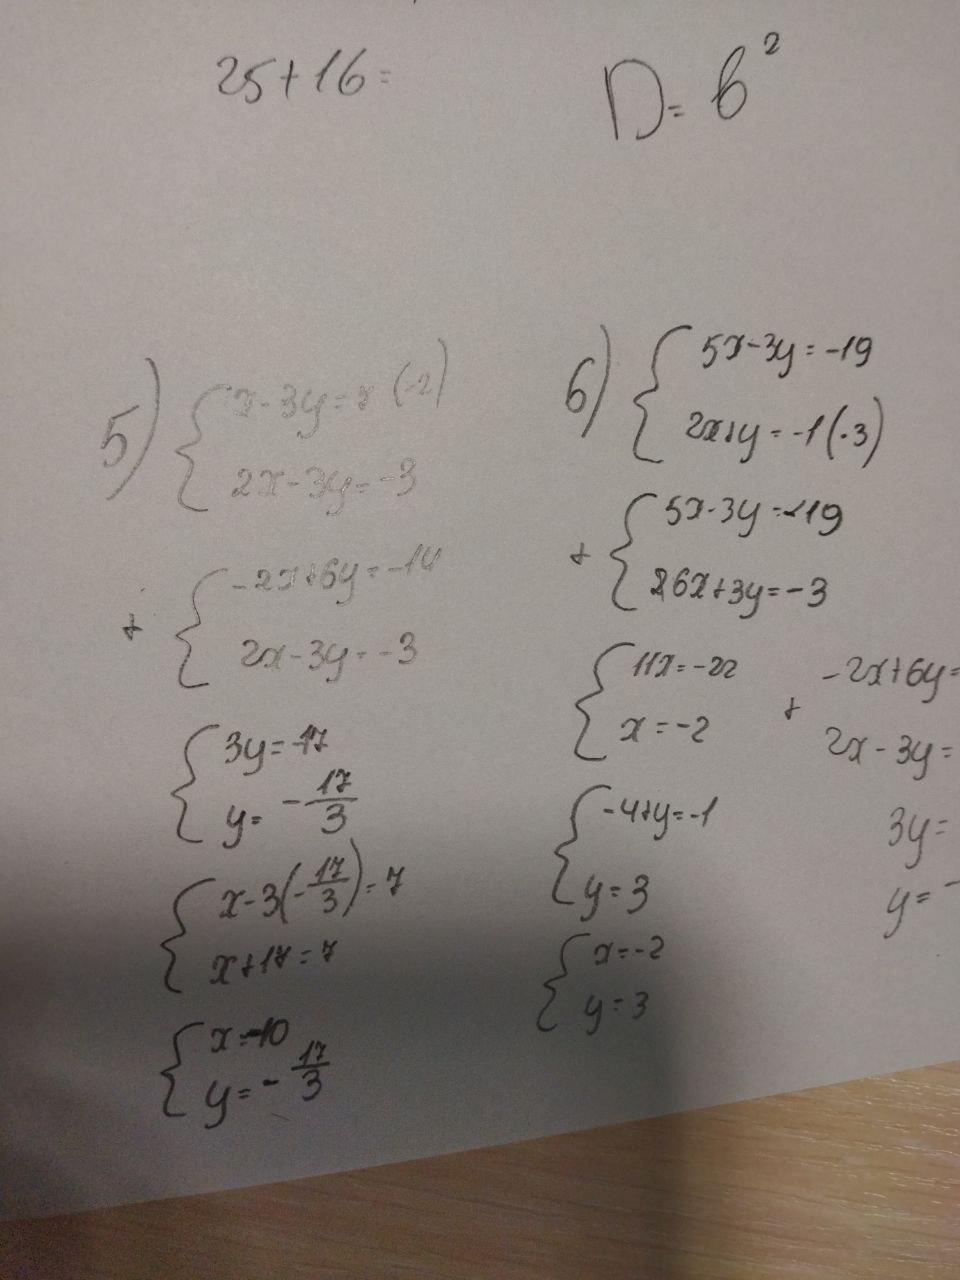 25+16=
D= b²
5) { x-3y=7 (-2)
2x-3y=-3
+ { -2x+6y=-14
2x-3y=-3
{ 3y=-17
y= -17/3
{ x-3(-17/3)=7
x+17=7
{ x=-10
y=-17/3
6) { 5x-3y=-19
2x+y=-1(·3)
+ { 5x-3y=-19
6x+3y=-3
{ 11x=-22
x=-2
{ -4+y=-1
y=3
{ x=-2
y=3
+ -2x+6y=
2x-3y=
3y=
y=-